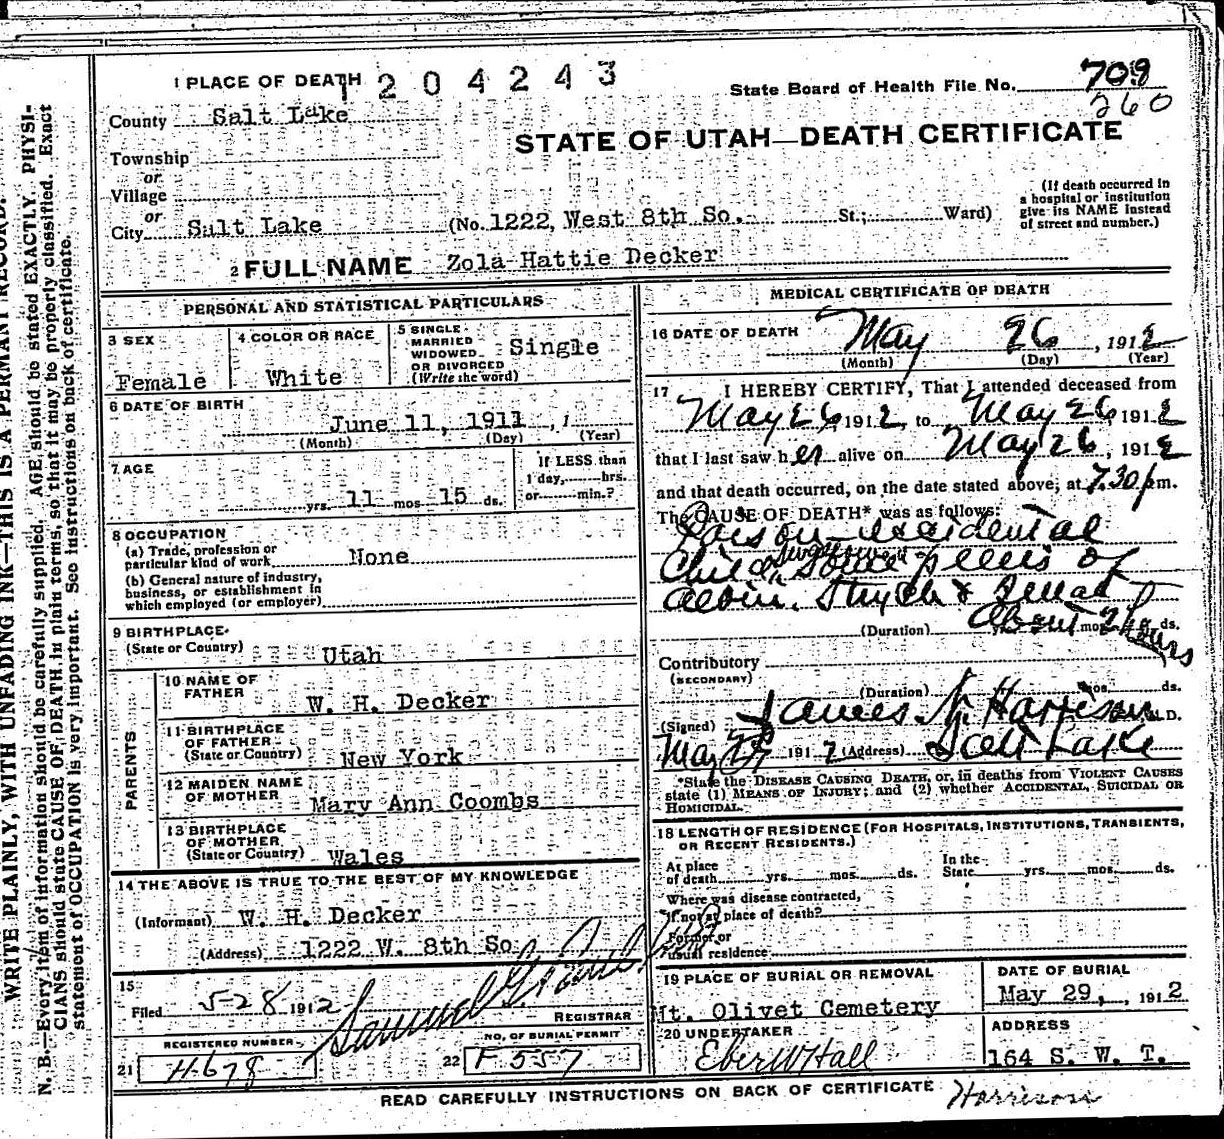 1 PLACE OF DEATH
1 2 0 4 2 4 3
State Board of Health File No. 709
260
County Salt Lake
STATE OF UTAH—DEATH CERTIFICATE
Township
or
Village
or
City Salt Lake (No. 1222, West 8th So. St.; Ward)
(If death occurred in a hospital or institution give its NAME instead of street and number.)
2 FULL NAME Zola Hattie Decker
PERSONAL AND STATISTICAL PARTICULARS
3 SEX
Female
4 COLOR OR RACE
White
5 SINGLE
MARRIED
WIDOWED
OR DIVORCED
(Write the word)
Single
6 DATE OF BIRTH
June 11, 1911
(Month) (Day) (Year)
7 AGE
yrs. 11 mos 15 ds.
If LESS than
1 day, hrs.
or min.?
8 OCCUPATION
(a) Trade, profession or
particular kind of work None
(b) General nature of industry,
business, or establishment in
which employed (or employer)
9 BIRTHPLACE
(State or Country) Utah
PARENTS
10 NAME OF
FATHER W. H. Decker
11 BIRTHPLACE
OF FATHER
(State or Country) New York
12 MAIDEN NAME
OF MOTHER Mary Ann Coombs
13 BIRTHPLACE
OF MOTHER
(State or Country) Wales
14 THE ABOVE IS TRUE TO THE BEST OF MY KNOWLEDGE
(Informant) W. H. Decker
(Address) 1222 W. 8th So
15
Filed 5-28 1912 Samuel G.
REGISTRAR
REGISTERED NUMBER
21 H678
NO. OF BURIAL PERMIT
22 F 557
MEDICAL CERTIFICATE OF DEATH
16 DATE OF DEATH May 26, 1912
(Month) (Day) (Year)
17 I HEREBY CERTIFY, That I attended deceased from
May 26 1912, to May 26, 1912
that I last saw her alive on May 26, 1912
and that death occurred, on the date stated above, at 7.30 p m.
The CAUSE OF DEATH* was as follows:
Poison—accidental
Child swallowed some pellets of
Aloin, Strych & Bellad
About 2 hours
(Duration) yrs. mos. ds.
Contributory
(SECONDARY)
(Duration) mos. ds.
(Signed) James N. Harrison M.D.
May 27, 1912 (Address) Salt Lake
*State the DISEASE CAUSING DEATH, or, in deaths from VIOLENT CAUSES
state (1) MEANS OF INJURY; and (2) whether ACCIDENTAL, SUICIDAL OR
HOMICIDAL.
18 LENGTH OF RESIDENCE (FOR HOSPITALS, INSTITUTIONS, TRANSIENTS,
OR RECENT RESIDENTS.)
At place
of death yrs. mos. ds.
In the
State yrs. mos. ds.
Where was disease contracted,
If not at place of death?
Former or
usual residence
19 PLACE OF BURIAL OR REMOVAL
Mt. Olivet Cemetery
DATE OF BURIAL
May 29, 1912
20 UNDERTAKER
Eber W Hall
ADDRESS
164 S. W. T.
READ CAREFULLY INSTRUCTIONS ON BACK OF CERTIFICATE
Harrison
WRITE PLAINLY, WITH UNFADING INK—THIS IS A PERMANENT RECORD.
N. B.—Every item of information should be carefully supplied. AGE should be stated EXACTLY. PHYSI-
CIANS should state CAUSE OF DEATH in plain terms, so that it may be properly classified. Exact
statement of OCCUPATION is very important. See instructions on back of certificate.